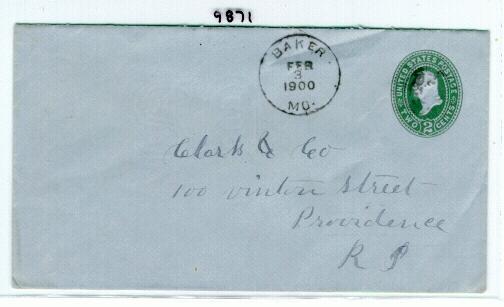 9871
BAKER
FEB
3
1900
MO.
UNITED STATES POSTAGE
TWO 2 CENTS
Clark & Co
100 Vinton Street
Providence
R I